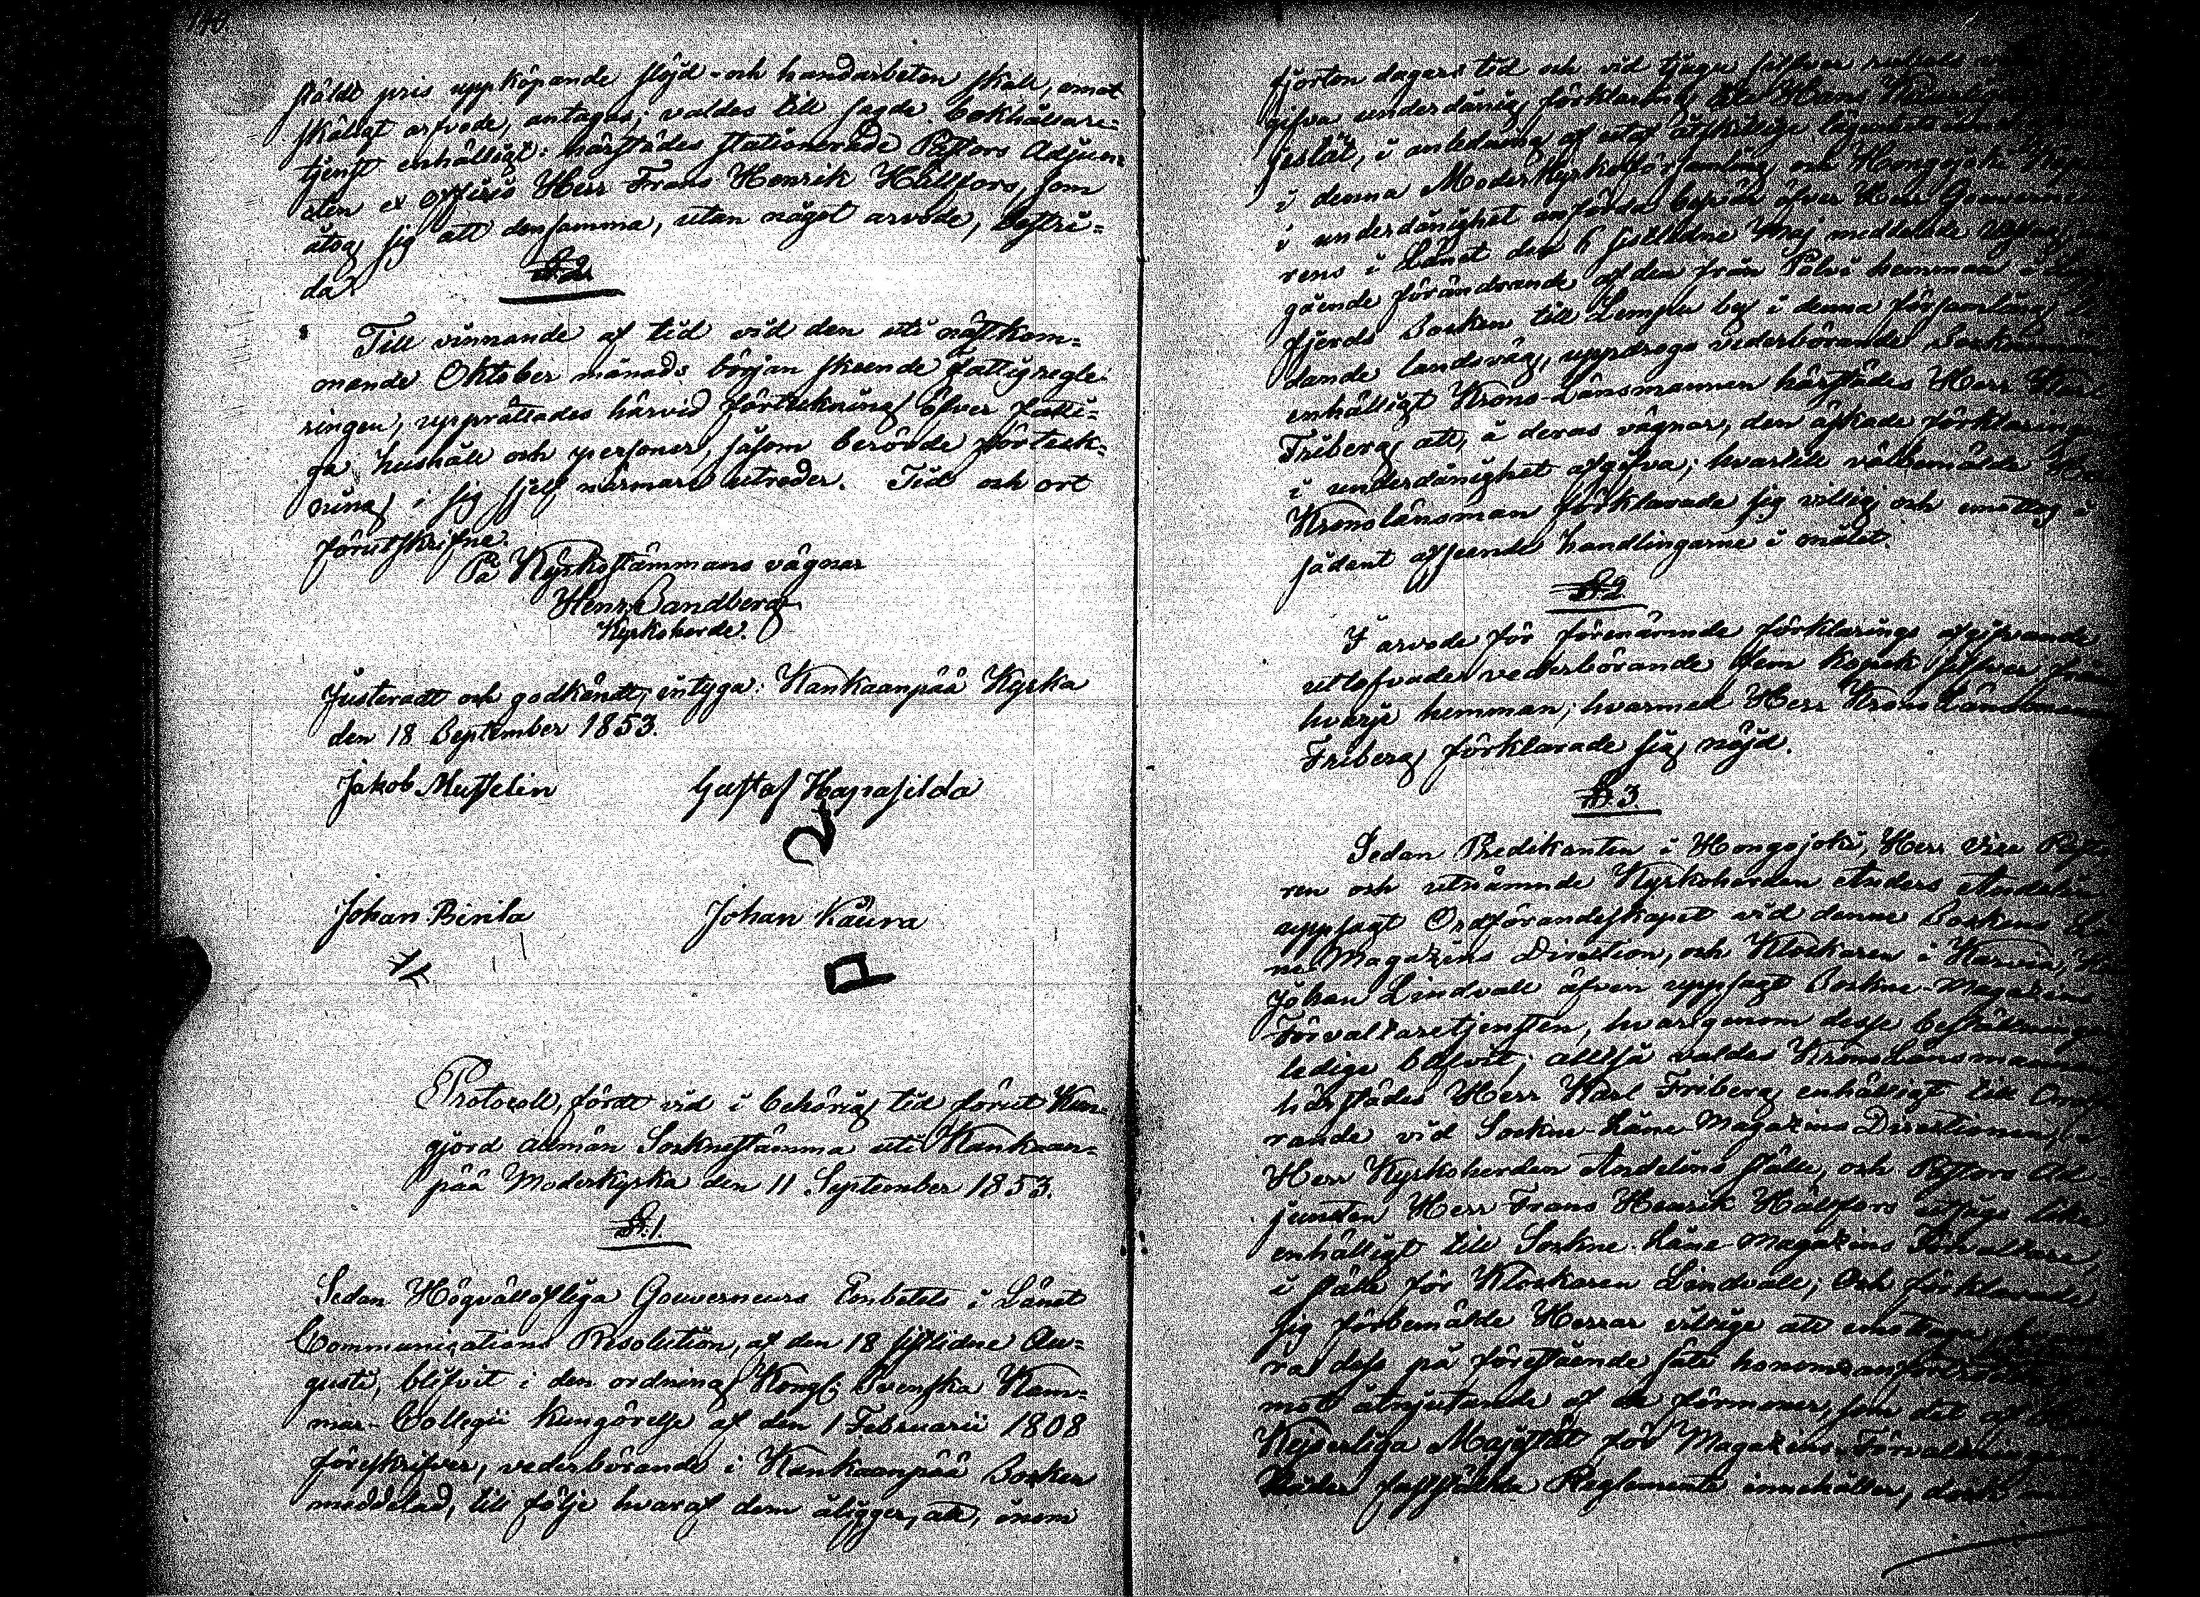 140.
ståldt pris uppköpande slöjd- och handarbeten skall, emot
skäligt arfvode, antagas; valdes till sagde bokhållare-
tjenst enhälligt: härstädes stationerade Pastors Adjunc-
ten ex officio Herr Frans Henrik Hällfors, som
åtog sig att densamma, utan något arvode, bestri-
da.
§. 2.
Till vinnande af tid vid den uti nästkom-
mande Oktober månads början skeende fattigregle-
ringen, upprättades härvid förtekning öfver fatti-
ga hushåll och personer, såsom berörde förteck-
ning i sig sjelf närmare utreder. Tid och ort
förutskrifne.
På Kyrkostämmans vägnar
Henr. Sandberg
Kyrkoherde.
Justeradt och godkändt, intyga: Kankaanpää Kyrka
den 18 September 1853.
Jakob Musselin
Gustaf Hapasilda
Johan Birila
Johan Kaura
Protocoll, fördt vid i behörig tid förut kun-
gjord allmän Socknestämma uti Kankaan-
pää Moderkyrka den 11 September 1853.
§. 1.
Sedan Högvällofliga Gouverneurs Embetets i Länet
Communications Resolution, af den 18 sistlidne Au-
gusti, blifvit i den ordning Kongl. Svenska Kam-
mar-Collegii kungörelse af den 1 Februarii 1808
föreskrifver, vederbörande i Kankaanpää Socken
meddelad, till följe hvaraf dem åligger, att, inom
fjorton dagars tid och vid tjugu silfver rubels
gifva underdånig förklaring till Hans Kejserliga
jestät, i anledning af utaf åtskillige lägenhets
i denna Moderkyrkoförsamling och Hongojoki
i underdånighet anförda besvär öfver Herr Gouverne
rens i Länet den 6 sistledne Maj meddelde Utslag,
gående förändrande af den från Palvi hemman i
fjerds Socken till Lempu by i denna församling
dande landsväg, uppdrogo vederbörande Sockneman
enhälligt Krono-Länsmannen härstädes Herr Karl
Friberg att, å deras vägnar, den äskade förklaringen
i underdånighet afgifva; hvartill välbemälde Herr
Kronolänsman förklarade sig villig och emottog i
sådant afseende handlingarne i målet.
§. 2
I arvode för förenämnde förklarings afgifvande
utlofvade vederbörande fem kopek silfver från
hvarje hemman; hvarmed Herr Krono Länsman
Friberg förklarade sig nöjd.
§. 3
Sedan Predikanten i Hongojoki, Herr Vice Pasto
ren och utnämnde Kyrkoherden Anders Andelin
uppsagt Ordförandeskapet vid denne Sockens Lå
ne Magazins Direction, och Klockaren i Karvia,
Johan Lindvall äfven uppsagt Sockne-Magazins
Förvaltaretjensten, hvarigenom desse beställningar
ledige blifvit; alltså valdes KronoLänsmannen
härstädes Herr Karl Friberg enhälligt till Ordfö
rande vid Sockne-Låne-Magazins Directionen, i
Herr Kyrkoherden Andelins ställe, och Pastors Ad-
juncten Herr Frans Henrik Hällfors utsågs lika
enhälligt till Sockne-Låne-Magazins Förvaltare,
i ställe för Klockaren Lindvall; Och förklarade
sig förbemälde Herrar villige att emottaga
ra desse på förestående sätt honom anförtrodde
mot åtnjutande af de förmoner, som det af Hans
Kejserliga Majestät för Magazins-Förvaltningen
faststälda Reglemente innehåller,